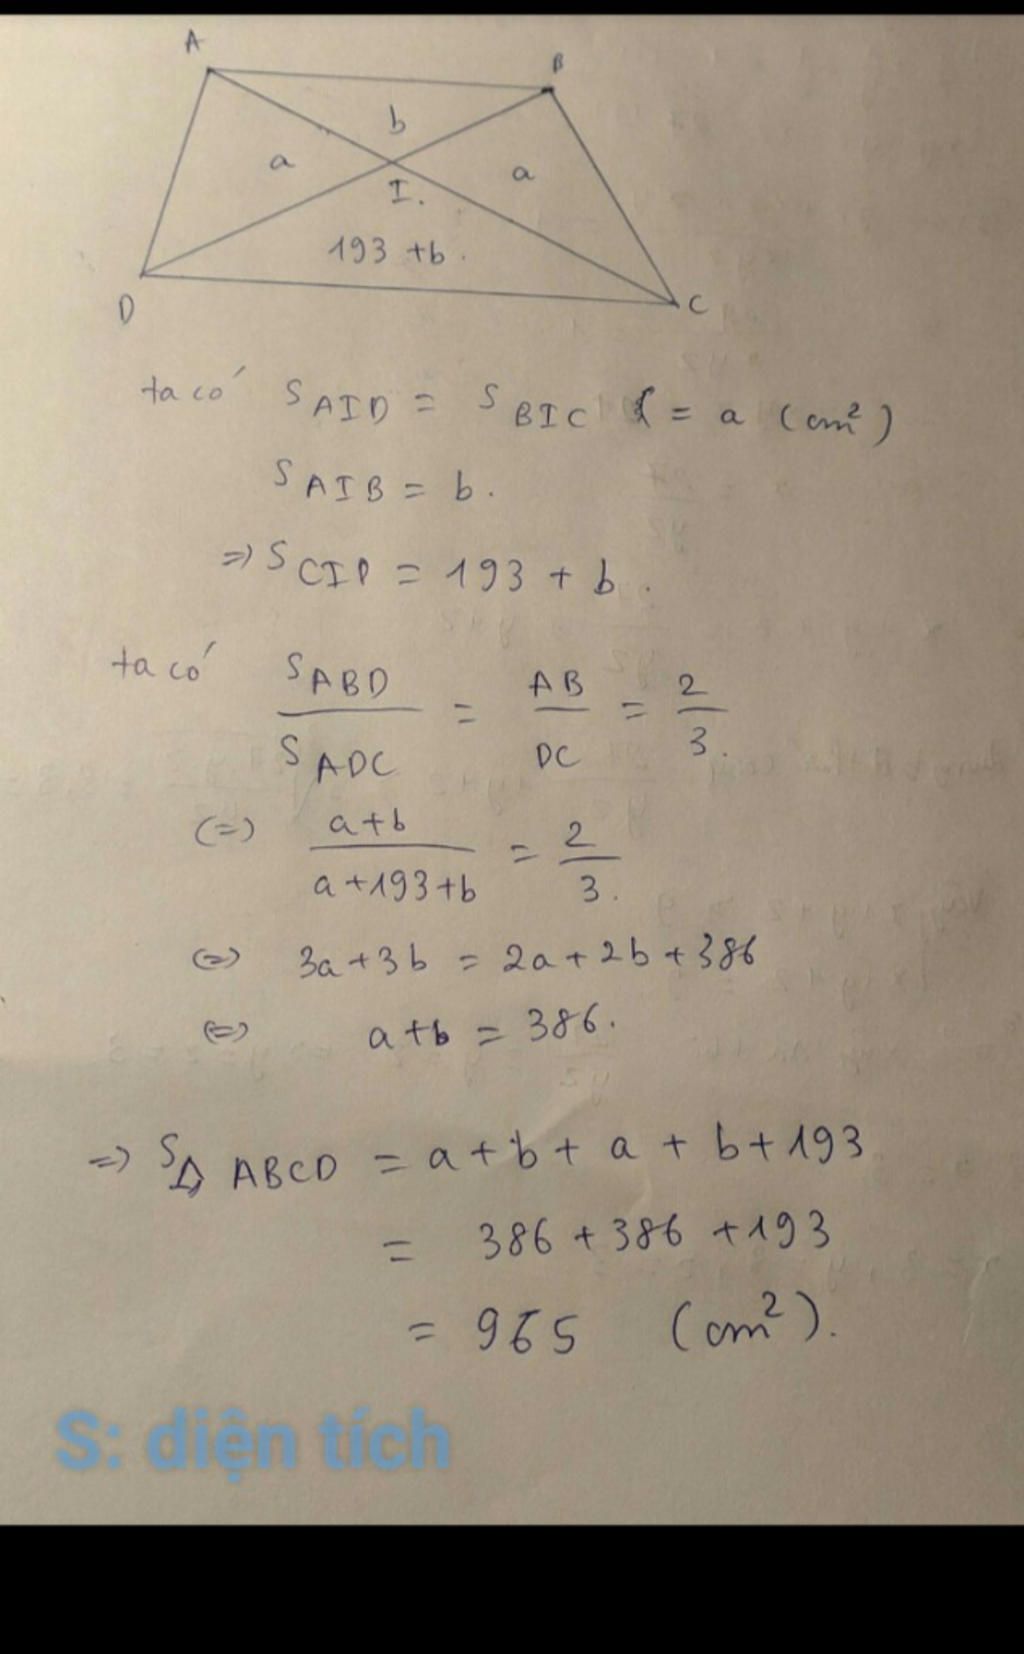 A
B
b
a
a
I.
193 + b.
D
C
ta có S AID = S BIC ( = a (cm²)
S AIB = b.
=> S CID = 193 + b.
ta có S ABD / S ADC = AB / DC = 2 / 3.
(=) a+b / a+193+b = 2 / 3.
(=) 3a+3b = 2a+2b+386
(=) a+b = 386.
=> S ABCD = a+b+ a + b+193
= 386 + 386 +193
= 965 (cm²).
S: diện tích